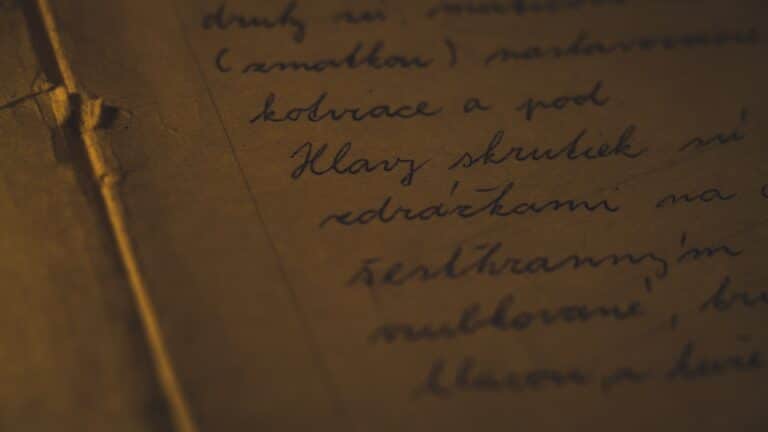 druhy sú
(zmatkou) nastavovacie
kotviace a pod
Hlavy skrutiek sú
zdrážkami na
šesťhranným
vrubkované,
hlavou, a